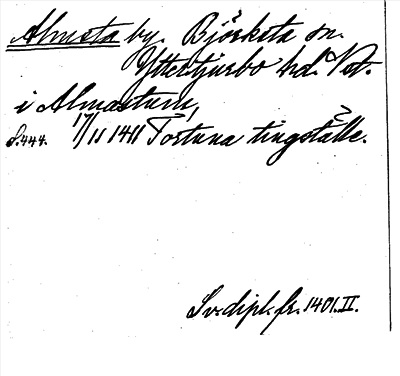 Almsta by. Björksta sn.
Yttertjurbo hd. Vst.
i Almastum,
S.444. 17/11 1411 Tortuna tingställe.
Sv. dipl. fr. 1401. II.